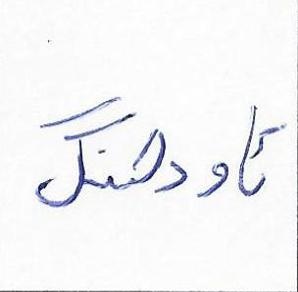 تاو دلتنگ